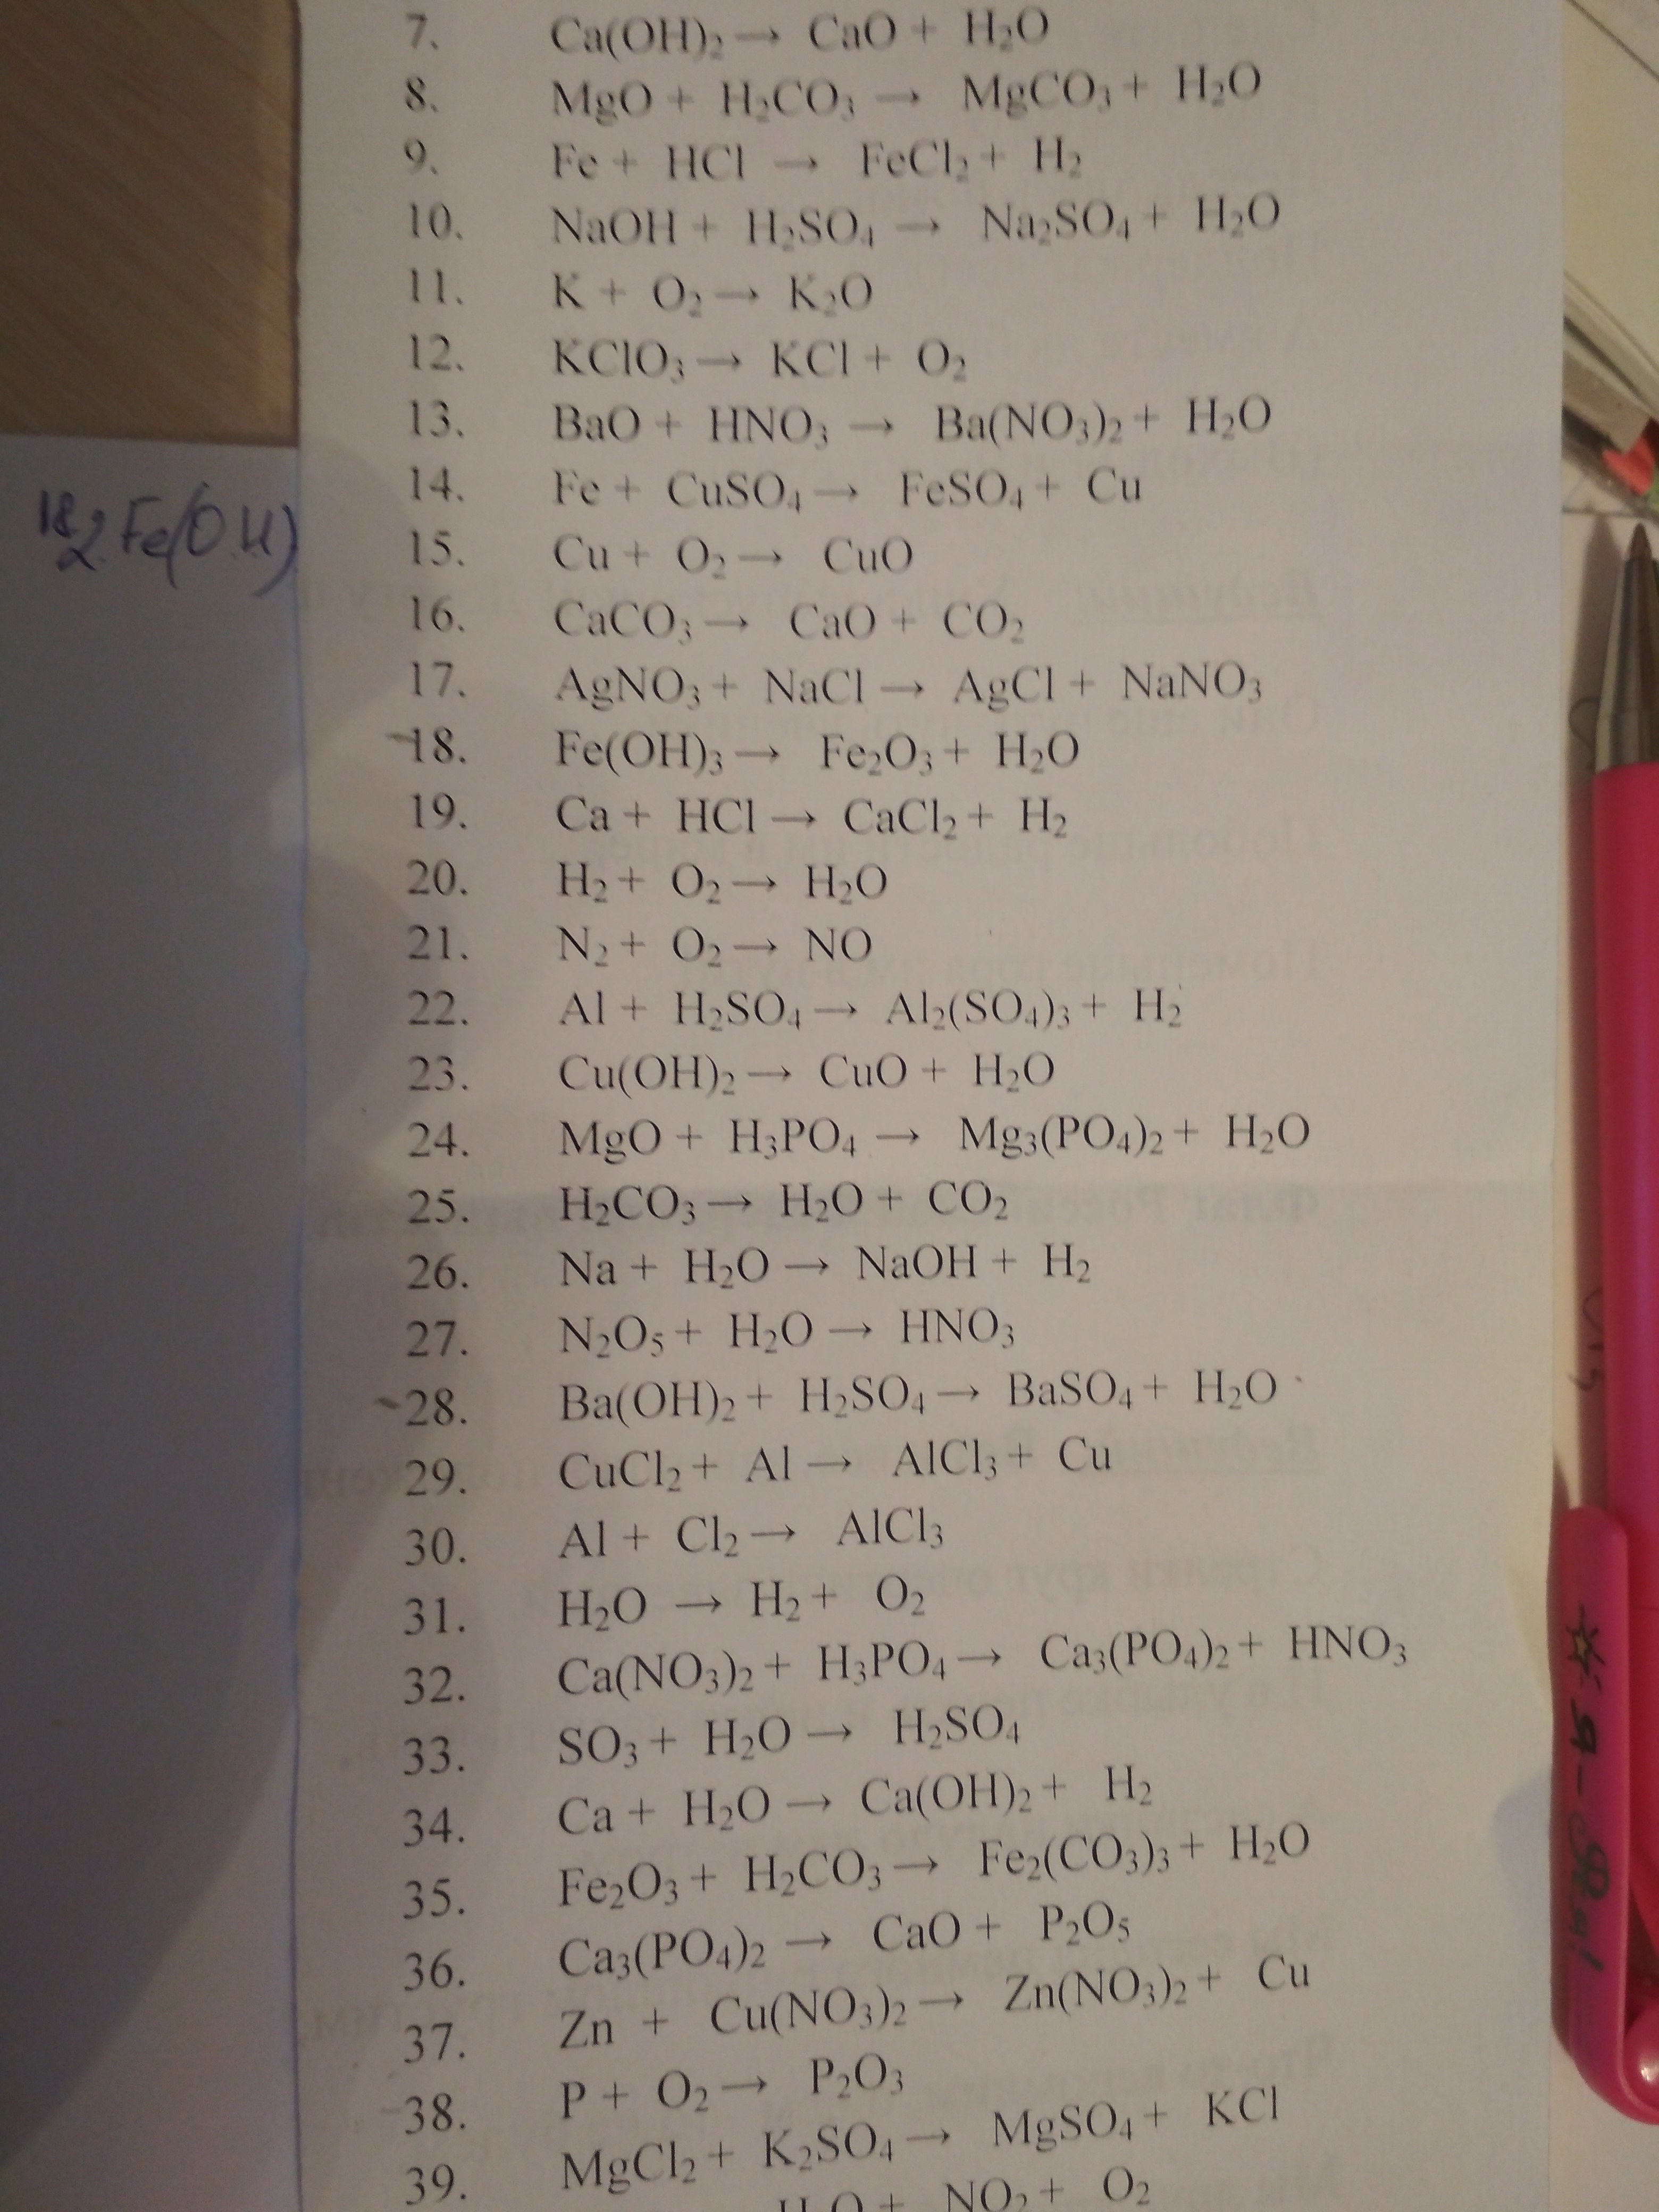 7. Ca(OH)₂ → CaO + H₂O
8. MgO + H₂CO₃ → MgCO₃ + H₂O
9. Fe + HCl → FeCl₂ + H₂
10. NaOH + H₂SO₄ → Na₂SO₄ + H₂O
11. K + O₂ → K₂O
12. KClO₃ → KCl + O₂
13. BaO + HNO₃ → Ba(NO₃)₂ + H₂O
14. Fe + CuSO₄ → FeSO₄ + Cu
18. 2Fe(OH)
15. Cu + O₂ → CuO
16. CaCO₃ → CaO + CO₂
17. AgNO₃ + NaCl → AgCl + NaNO₃
18. Fe(OH)₃ → Fe₂O₃ + H₂O
19. Ca + HCl → CaCl₂ + H₂
20. H₂ + O₂ → H₂O
21. N₂ + O₂ → NO
22. Al + H₂SO₄ → Al₂(SO₄)₃ + H₂
23. Cu(OH)₂ → CuO + H₂O
24. MgO + H₃PO₄ → Mg₃(PO₄)₂ + H₂O
25. H₂CO₃ → H₂O + CO₂
26. Na + H₂O → NaOH + H₂
27. N₂O₅ + H₂O → HNO₃
28. Ba(OH)₂ + H₂SO₄ → BaSO₄ + H₂O
29. CuCl₂ + Al → AlCl₃ + Cu
30. Al + Cl₂ → AlCl₃
31. H₂O → H₂ + O₂
32. Ca(NO₃)₂ + H₃PO₄ → Ca₃(PO₄)₂ + HNO₃
33. SO₃ + H₂O → H₂SO₄
34. Ca + H₂O → Ca(OH)₂ + H₂
35. Fe₂O₃ + H₂CO₃ → Fe₂(CO₃)₃ + H₂O
36. Ca₃(PO₄)₂ → CaO + P₂O₅
37. Zn + Cu(NO₃)₂ → Zn(NO₃)₂ + Cu
38. P + O₂ → P₂O₃
39. MgCl₂ + K₂SO₄ → MgSO₄ + KCl
H₂O + NO₂ + O₂